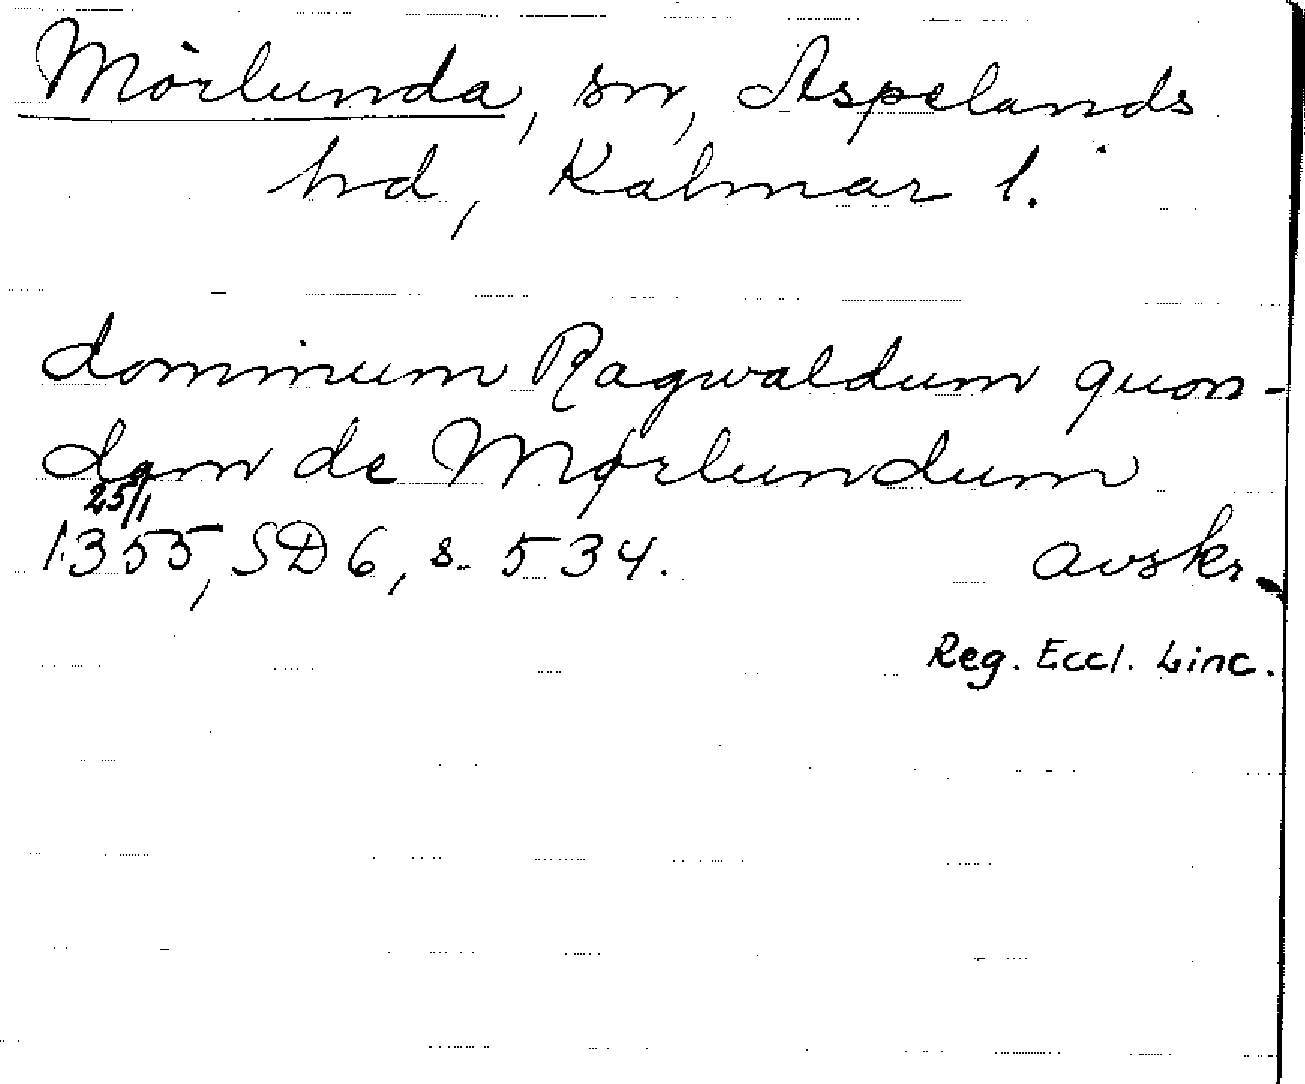 Mörlunda, sn, Aspelands
hd, Kalmar l.
dominum Ragwaldum quon-
dam de Mørlundum
25/1
1355, SD 6, s. 534. avskr.
Reg. Eccl. Linc.